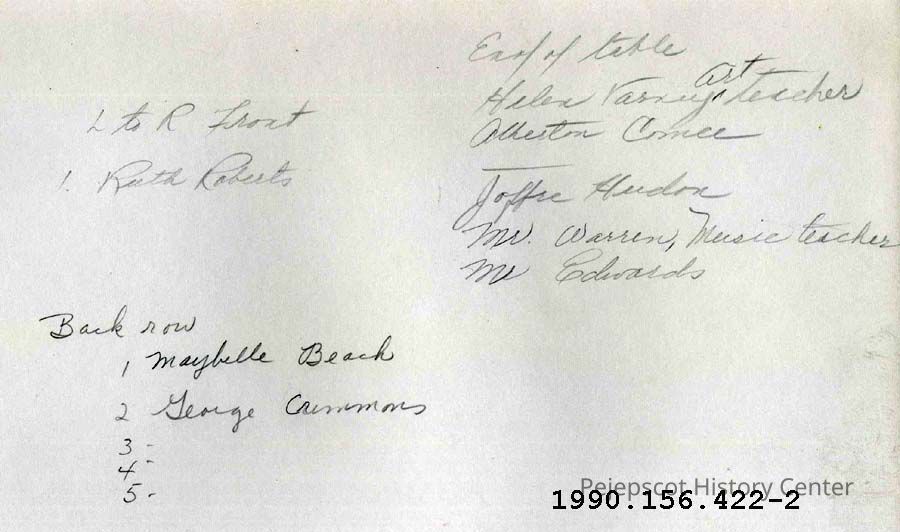 L to R Front
1. Ruth Roberts
End of table
Helen Varney, Art teacher
Allerton Comee
Joffre Hudon
Mr. Warren, Music teacher
Mr Edwards
Back row
1 Maybelle Beach
2 George Crimmons
3 -
4 -
5 -
Pejepscot History Center
1990.156.422-2